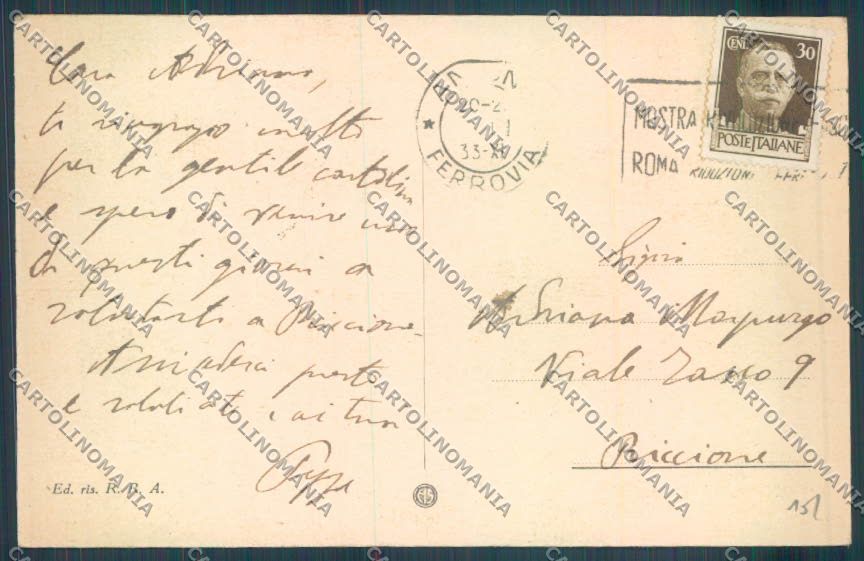 Cara Adriana,
ti ringrazio molto
per la gentile cartolina
e spero di venire uno
di questi giorni a
salutarti a Riccione.
Arrivederci presto
e saluti ai tuoi
Ed. ris. R. B. A.
FERROVIA
33-XI
MOSTRA RIVOLUZIONE
ROMA RIDUZIONI FERR
CENT. 30
POSTE ITALIANE
Adriana Morpurgo
Viale Tasso 9
Riccione
151
CARTOLINOMANIA